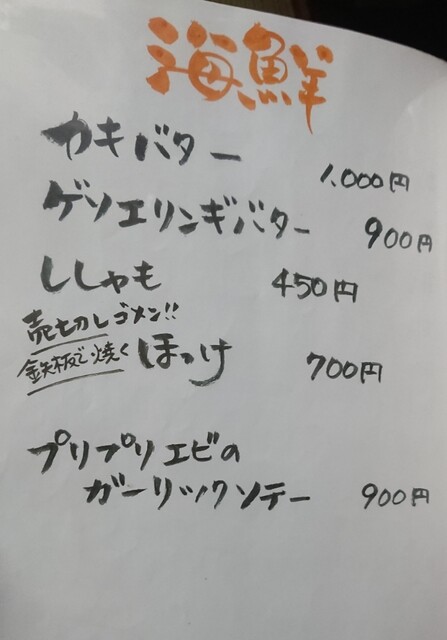 海鮮
カキバター 1.000円
ゲソエリンギバター 900円
ししゃも 450円
売切しゴメン!!
鉄板で焼く ほっけ 700円
プリプリエビの
ガーリックソテー 900円